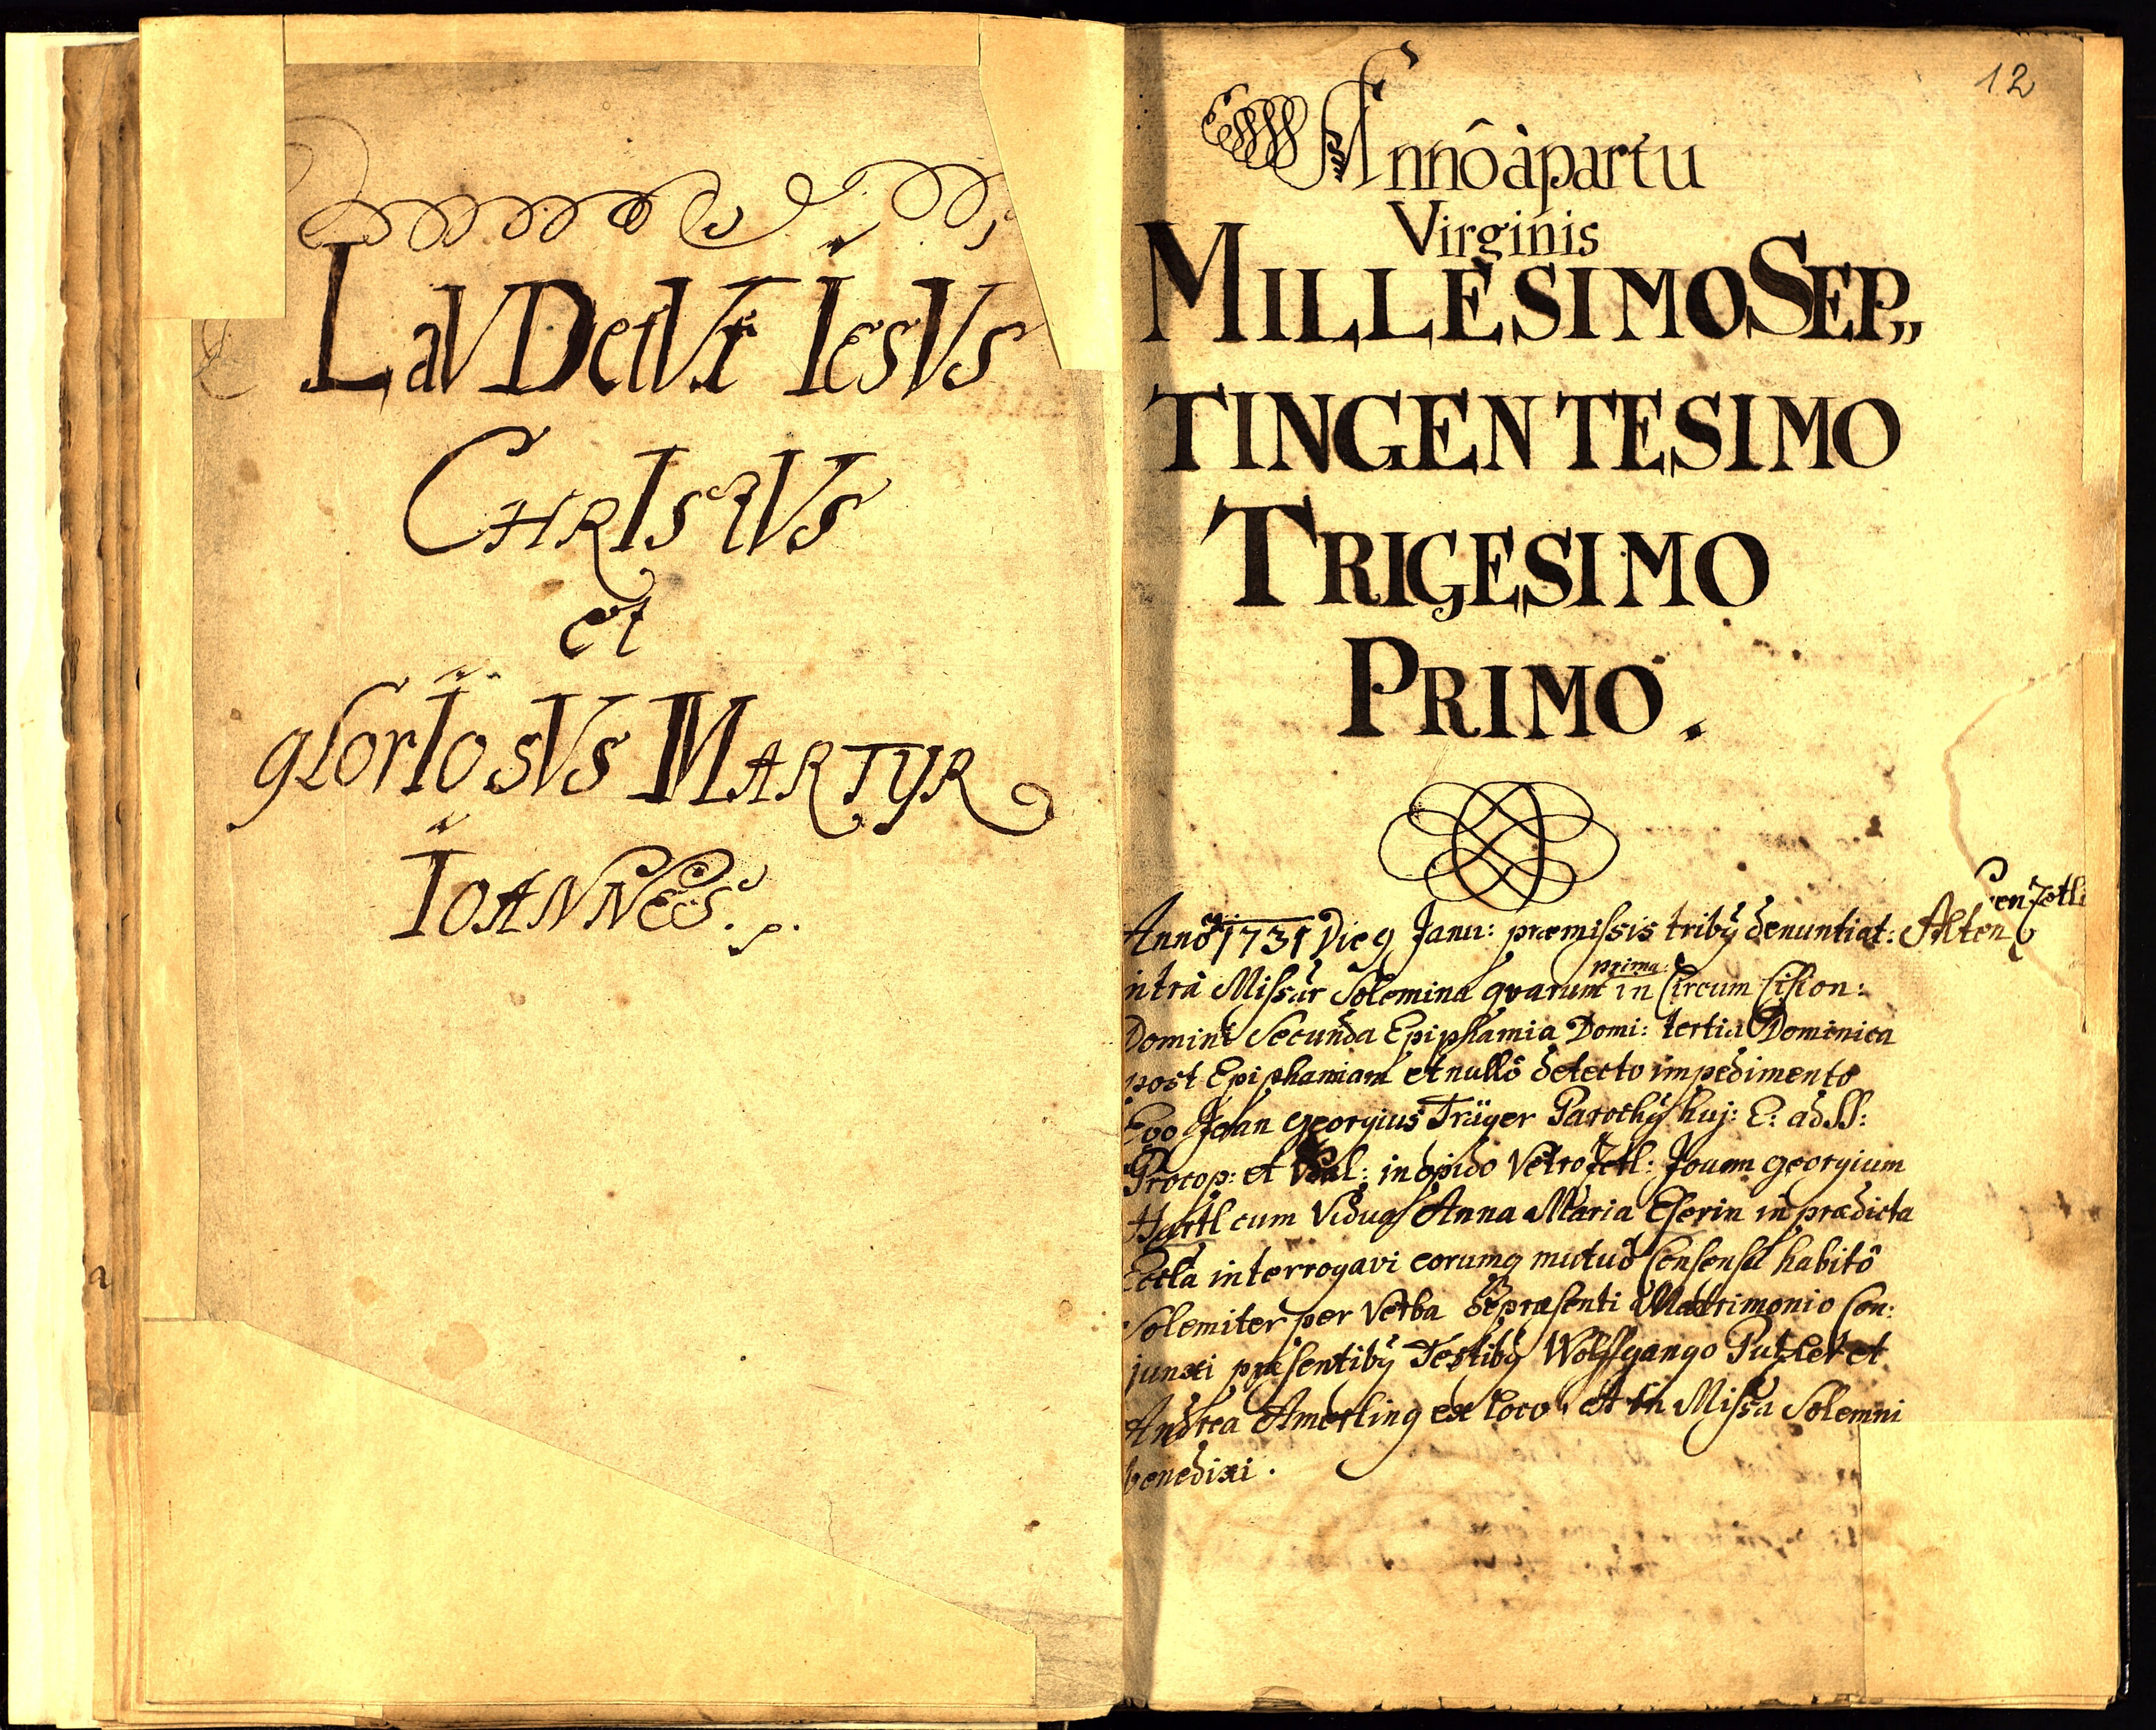 LaVDetVr IesVs
CHRIstVs
et
gLorIosVs MARTYR
IOANNES. p.
12
Annô à partu
Virginis
MILLESIMO SEP„
TINGENTESIMO
TRIGESIMO
PRIMO.
Annô 1731 Die 9 Janu: præmissis tribȳ denuntiat: Alten
Zetl
intrà Missar Solemina qvarum prima in Circum Cision:
Domini Secunda Epiphamia Domi: tertia Dominica
post Epiphaniam et nullô detecto impedimento
Ego Joan Georgius Träger Parochȳ huj: E: ad SS:
Procop: et Udal: in opido Vetrozetl: Jouem georgium
Hartl cum Vidua Anna Maria Eserin in prædicta
Ecclâ interrogavi eorumq mutuô Consensu habitô
Solemiter per Verba de præsenti Matrimonio Con:
junxi præsentibȳ Testibȳ Wolffgango Putzer et
Andrea Amerling ex loco, et in Missa Solemni
benedixi.